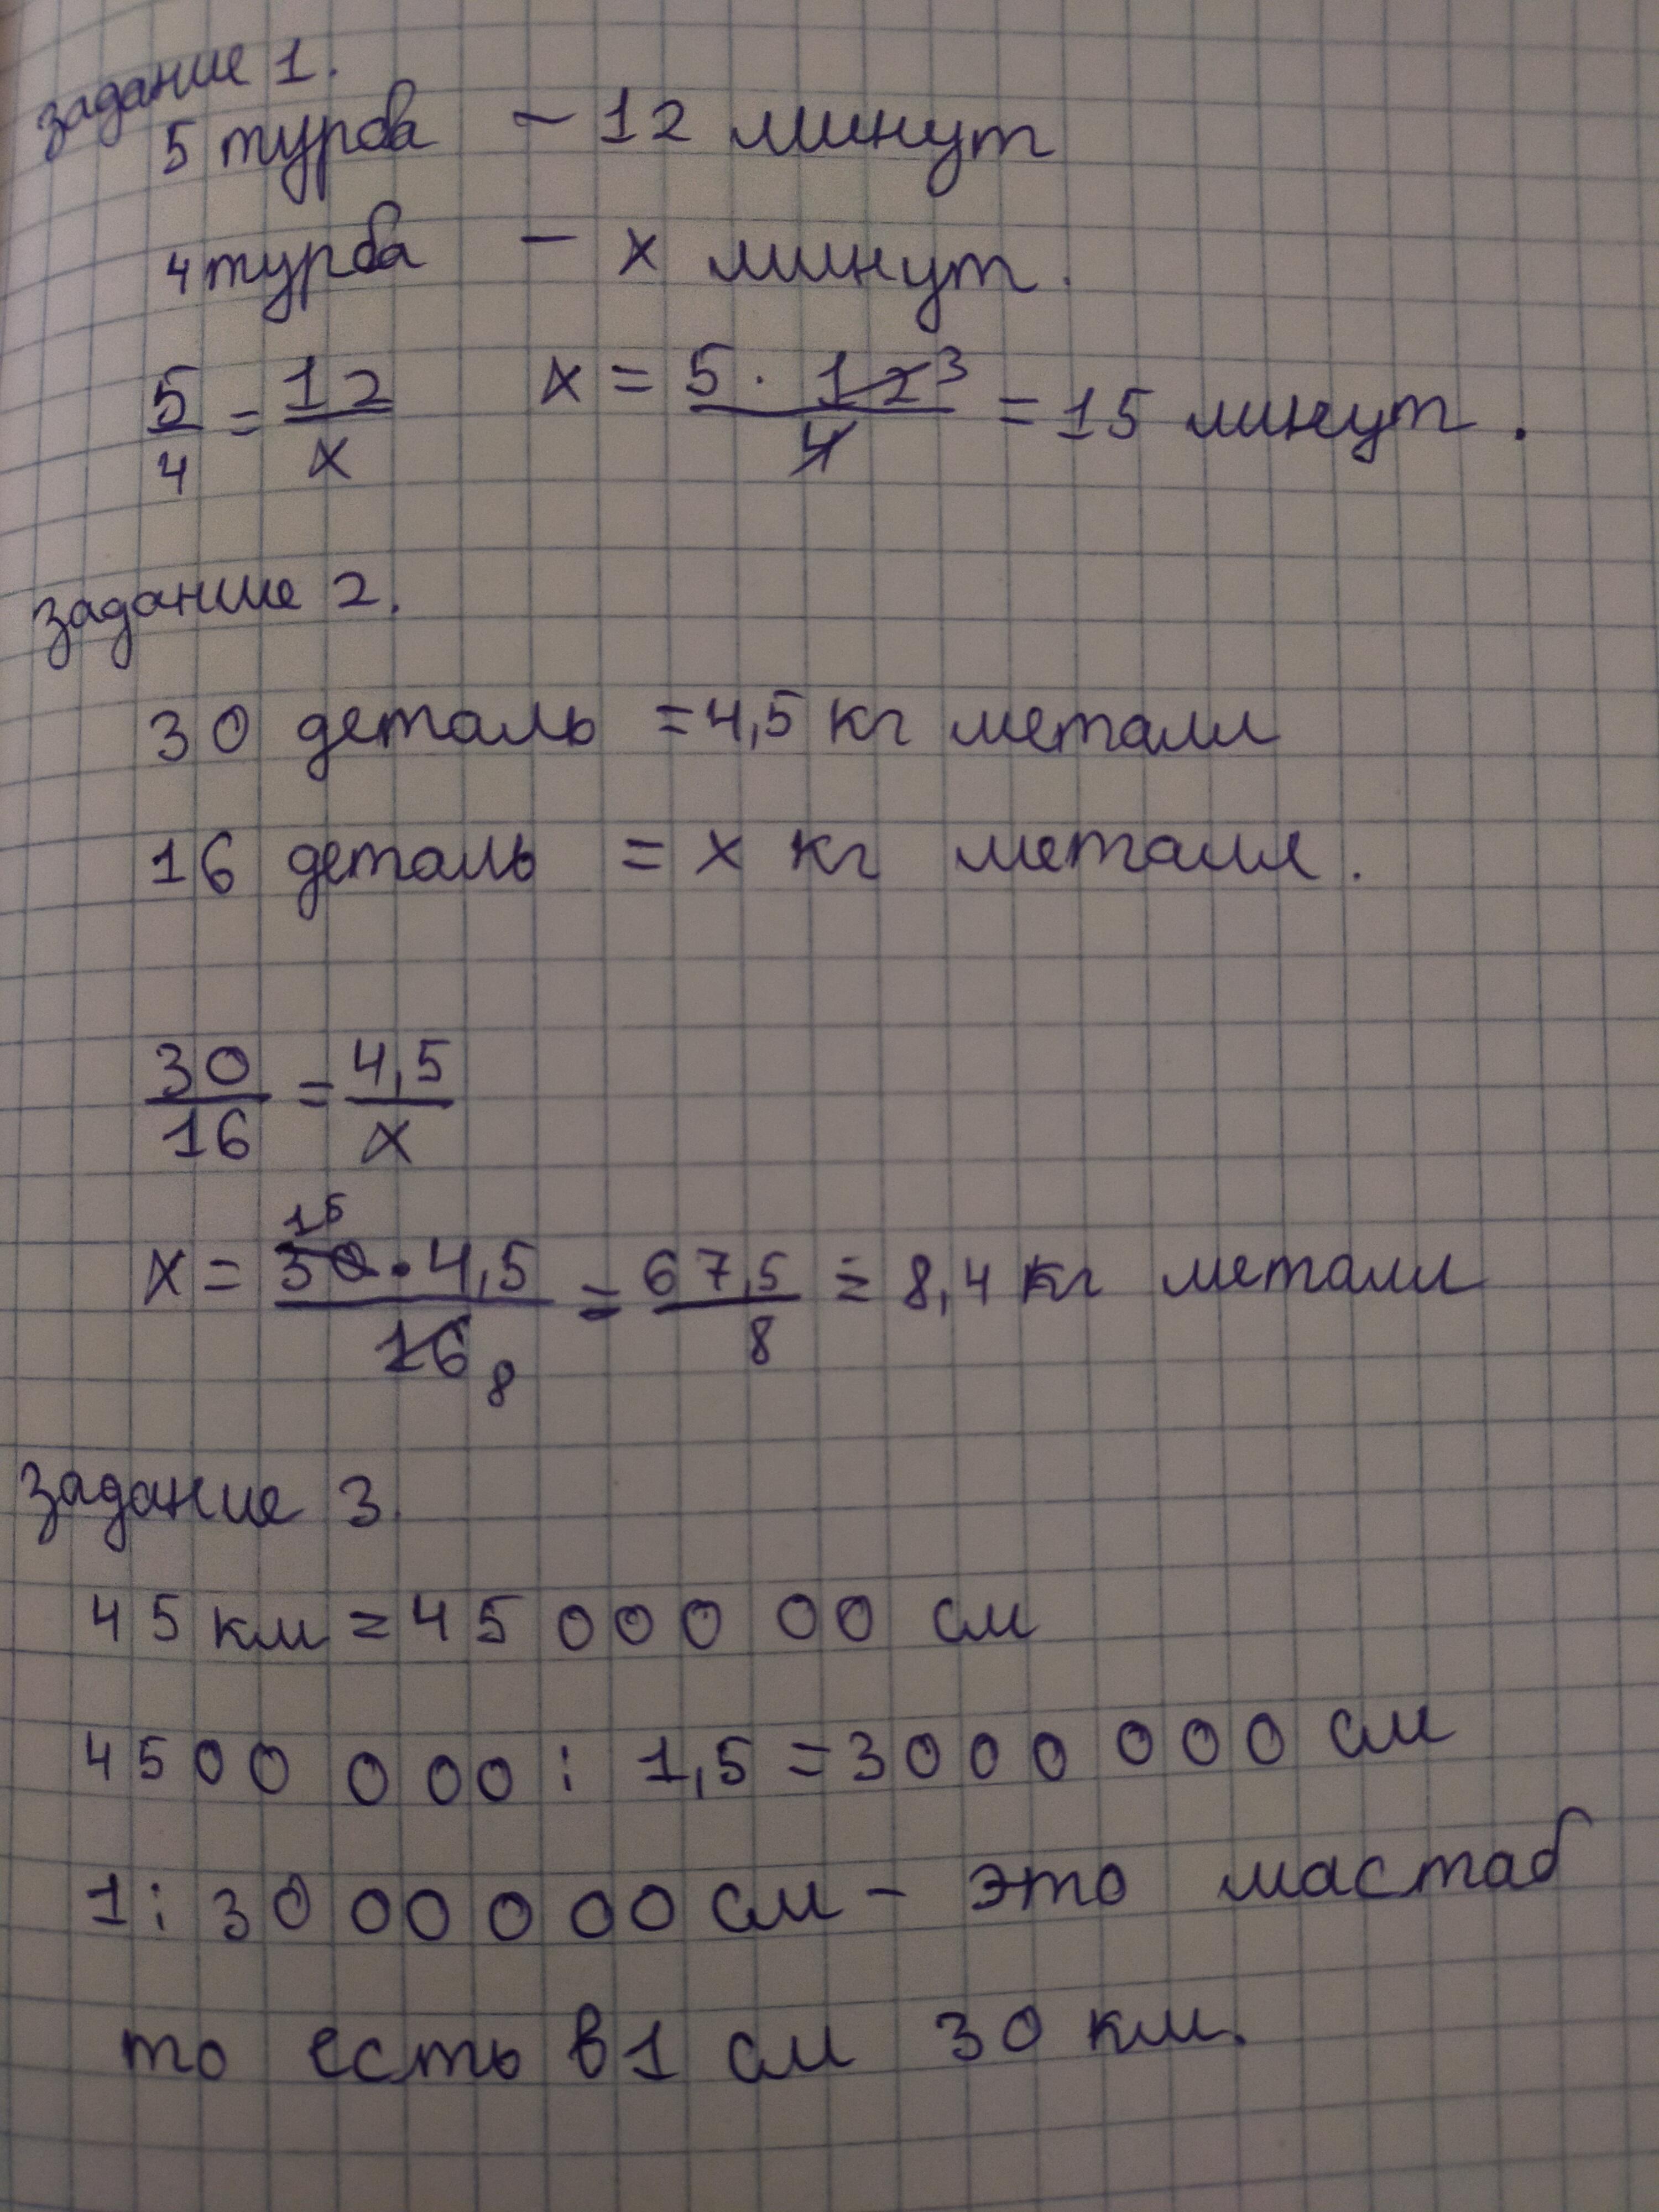 задание 1.
5 турба – 12 минут
4 турба – x минут.
5/4 = 12/x x = 5 · 12 3 / 4 = 15 минут.
задание 2.
30 деталь = 4,5 кг металл
16 деталь = x кг металл.
30/16 = 4,5/x
x = 30 15 · 4,5 / 16 8 = 67,5/8 = 8,4 кг металл
задание 3.
45 км = 45 000 00 см
4500 000 : 1,5 = 3000 000 см
1 : 30 00 0 00 см – это мастаб
то есть в 1 см 30 км.